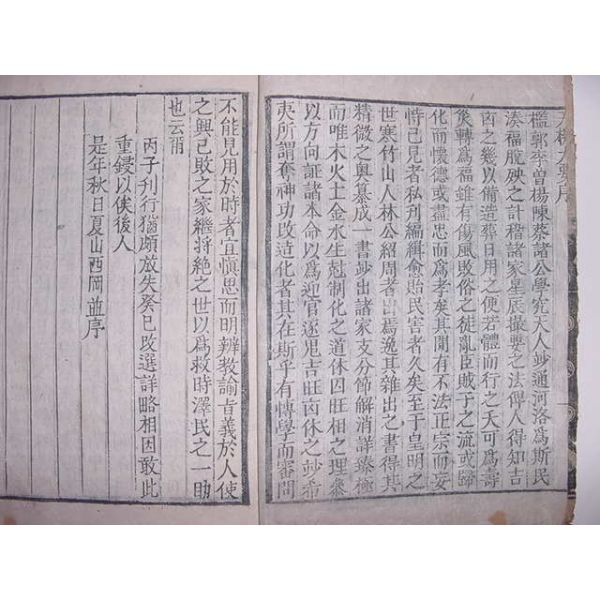 天機大要序
檻郭李曾楊陳蔡諸公學究天人玅通河洛爲斯民
湊福脫殃之計稽諸家皇辰撮要之法俾人得知吉
㐫之幾以備造葬日用之便若體而行之夭可爲壽
災轉爲福雖有傷風敗俗之徒亂臣賊子之流或歸
化而懷德或盡忠而爲孝矣其間有不法正宗而妄
恃己見者私刋編緝愈貽民害者久矣至于皇明之
世寒竹山人林公紹周者出焉逸其雜出之書得其
精微之奥纂成一書玅出諸家支分節解消詳臻極
而唯木火土金水生尅制化之道休囚旺相之理叅
以方向証諸本命以爲迎官逐鬼吉旺㐫休之玅希
夷所謂奪神功改造化者其在斯乎有博學而審問
不能見用於時者宜愼思而明辨敎諭旨義於人使
之興已敗之家繼將絶之世以爲救時澤民之一助
也云爾
丙子刋行猶頗放失癸巳改選詳略相因敢此
重鋟以俟後人
是年秋日夏山西岡並序